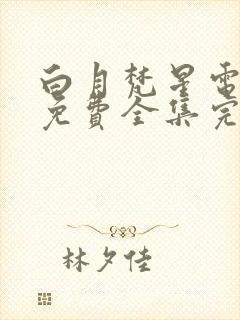 白月梵星電
免費全集完
林夕佳